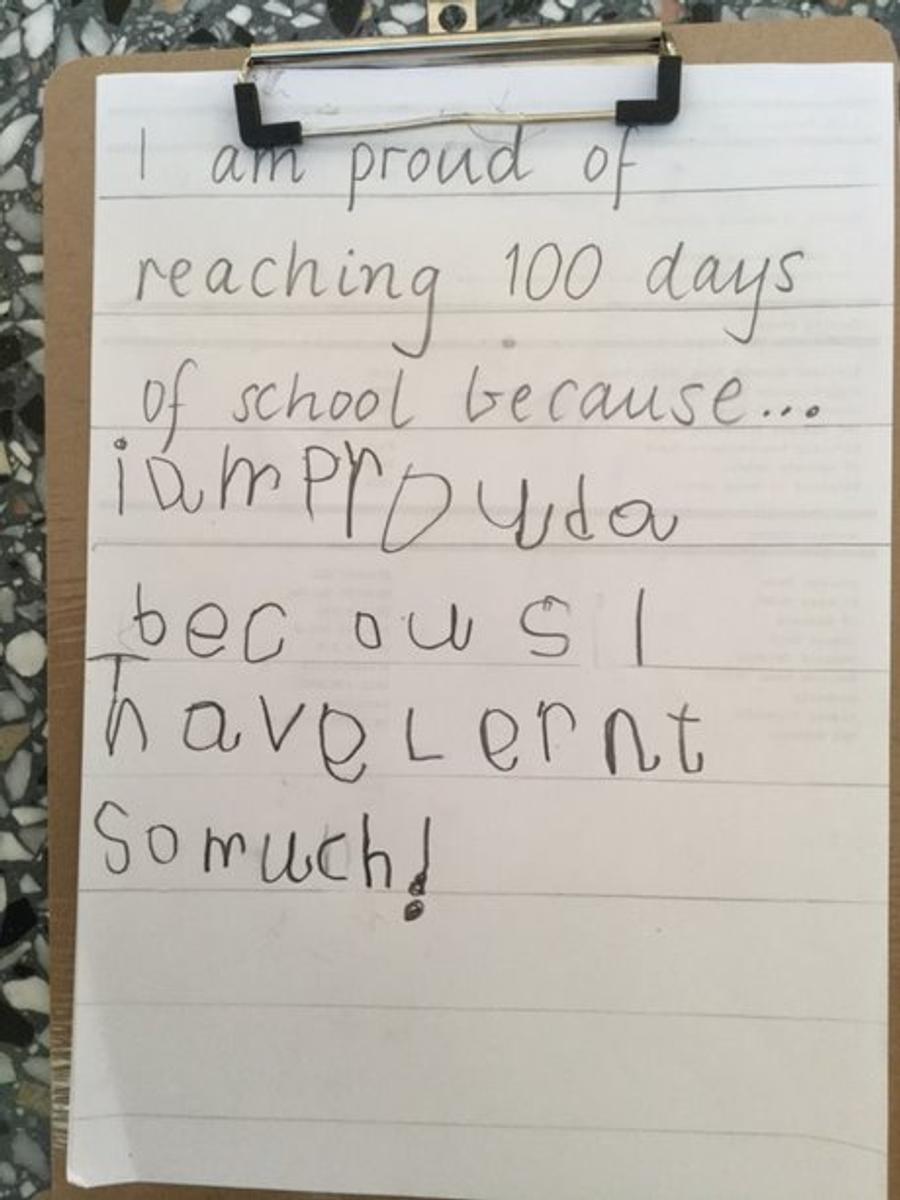 I am proud of
reaching 100 days
of school because...
iamprouda
becous I
havelernt
somuch!